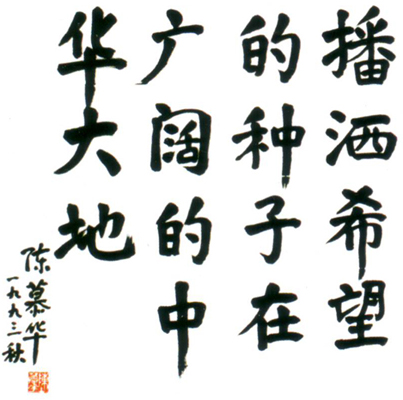 播洒希望
的种子在
广阔的中
华大地
陈慕华
一九九三秋